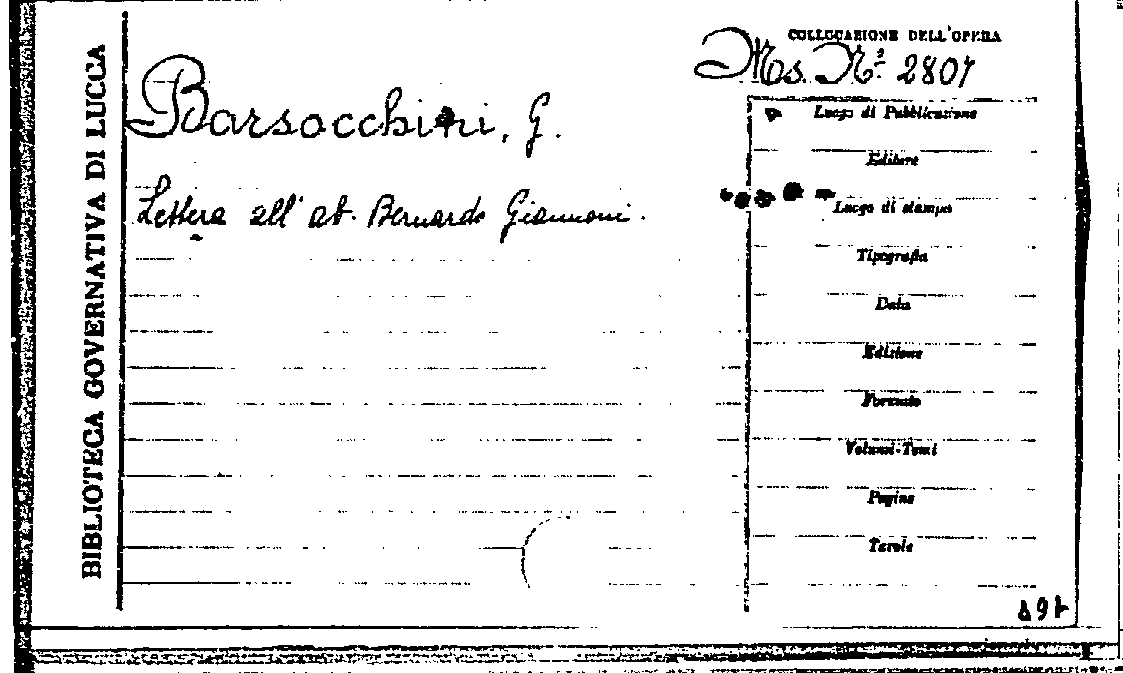 BIBLIOTECA GOVERNATIVA DI LUCCA
COLLOCAZIONE DELL'OPERA
Ms. Nº 2807
Barsocchini, G.
Lettera all' ab. Bernardo Giannoni.
Luogo di Pubblicazione
Editore
Luogo di stampa
Tipografia
Data
Edizione
Formato
Volumi-Tomi
Pagine
Tavole